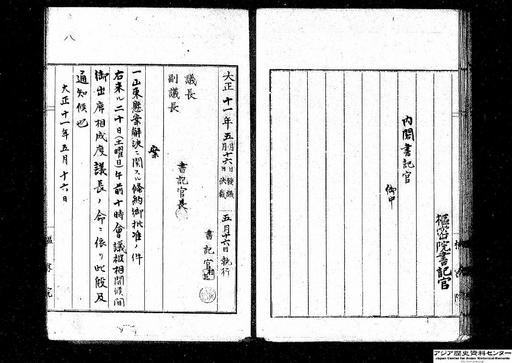 枢密院書記官
内閣書記官 御中
大正十一年五月十六日発議
五月十六日決裁
五月十六日執行
議長
副議長
書記官長
書記官
案
一山東懸案解決ニ関スル條約御批准ノ件
右来ル二十日(土曜日)午前十時會議被相開候間
御出席相成度議長ノ命ニ依リ此段及
通知候也
大正十一年五月十六日
八
枢密院
アジア歴史資料センター
Japan Center for Asian Historical Records